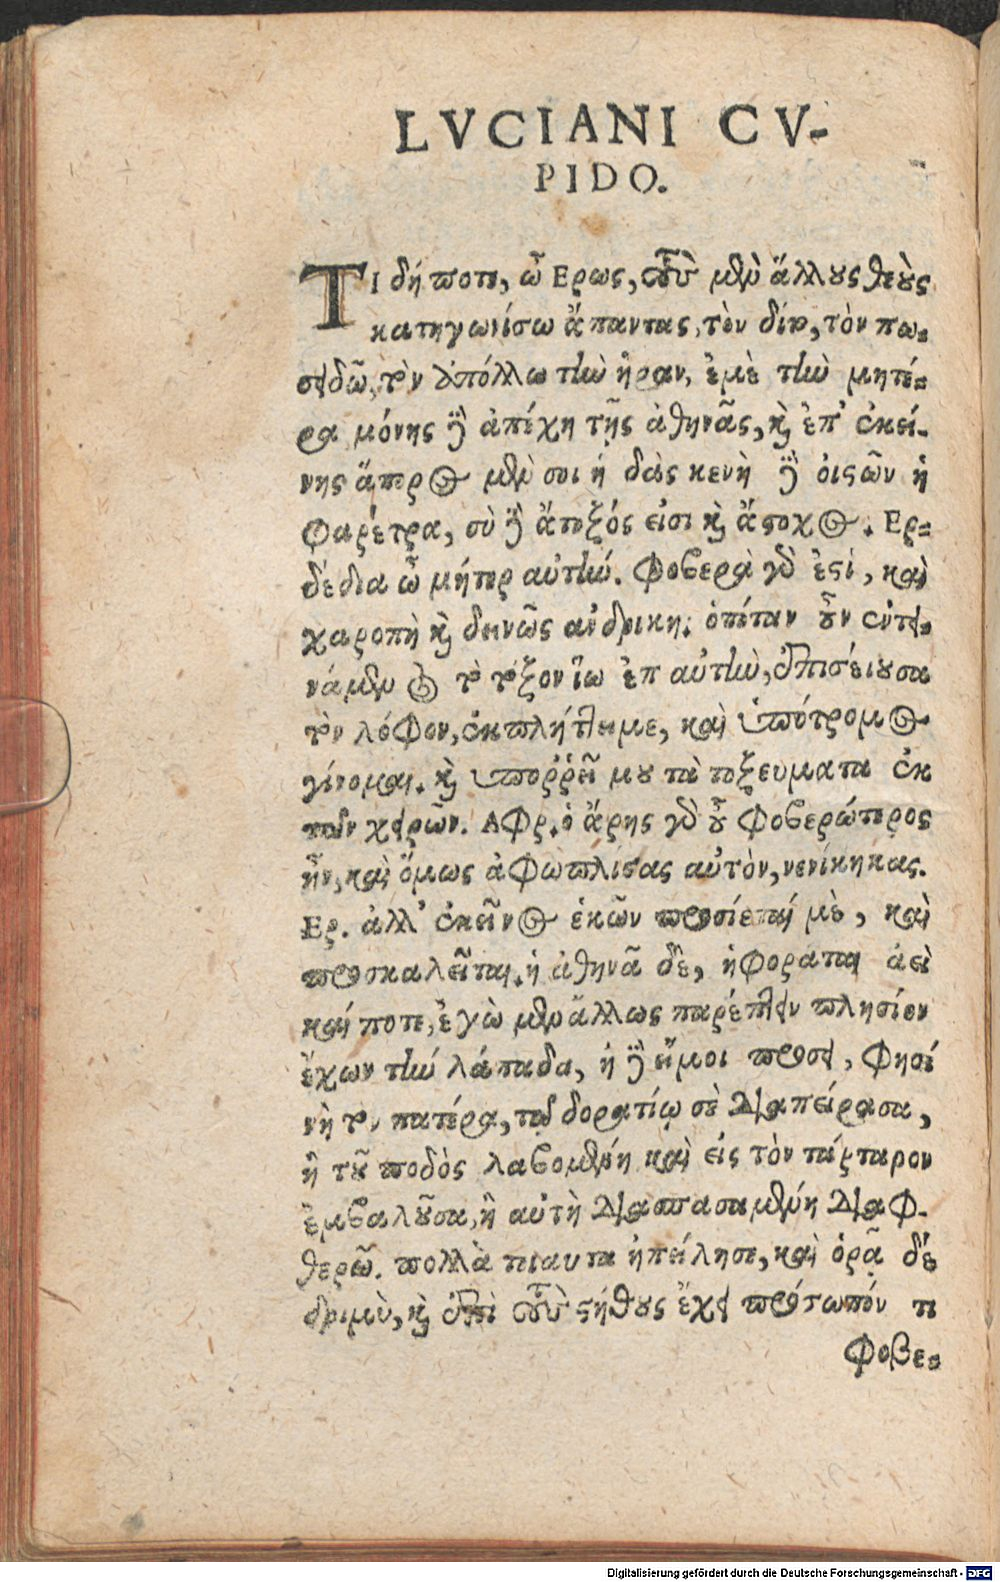 LVCIANI CV-
PIDO.
ΤΙ δή ποτε, ὦ Ερως, τοὺς μὲν ἄλλους θεοὺς
κατηγωνίσω ἅπαντας, τὸν δία, τὸν πο-
σειδῶ, τὸν ἀπόλλω τὴν ἥραν, ἐμὲ τὴν μητέ-
ρα μόνης δὲ ἀπέχη τῆς ἀθηνᾶς, καὶ ἐπ' ἐκεί-
νης ἄπυρος μὲν σοι ἡ δᾲς κενὴ δὲ οἰστῶν ἡ
φαρέτρα, σὺ δὲ ἄτοξός εἰσι καὶ ἄστοχος. Ερ-
δέδια ὦ μήτερ αὐτὴν. φοβερὰ γὰρ ἐστὶ, καὶ
χαροπὴ καὶ δεινῶς ἀνδρικη. ὁπόταν οὖν ἐντει-
νάμενος τὸ τόξον ἴω ἐπ αὐτὴν, ἐπισείουσα
τὸν λόφον, ἐκπλήττει με, καὶ ὑπότρομος
γίνομαι. καὶ ὑπορῥεῖ μου τὰ τοξευματα ἐκ
τῶν χειρῶν. Αφρ. ὁ ἄρης γὰρ οὐ φοβερώτερος
ἦν, καὶ ὅμως ἀφώπλισας αὐτὸν, νενίκηκας.
Ερ. ἀλλ' ἐκεῖνος ἑκὼν προσίεταί μὲ, καὶ
προσκαλεῖται. ἡ ἀθηνᾶ δὲ, ὑφορᾶται ἀεὶ
καί ποτε, ἐγὼ μὲν ἄλλως παρέπτην πλησίον
ἔχων τὴν λάπαδα, ἡ δὲ εἴ μοι πρόσει, φησί
νὴ τὸν πατέρα, τῷ δορατίῳ σὲ διαπείρασα,
ἢ τοῦ ποδὸς λαβομένη καὶ εἰς τὸν τάρταρον
ἐμβαλοῦσα, ἢ αὐτὴ διασπασαμένη διαφ-
θερῶ. πολλὰ τοιαυτα ἠπείλησε, καὶ ὁρᾷ δὲ
δριμὺ, καὶ ἐπὶ τοῦ στήθους ἔχει πρόσωπόν τι
φοβε-
Digitalisierung gefördert durch die Deutsche Forschungsgemeinschaft - DFG